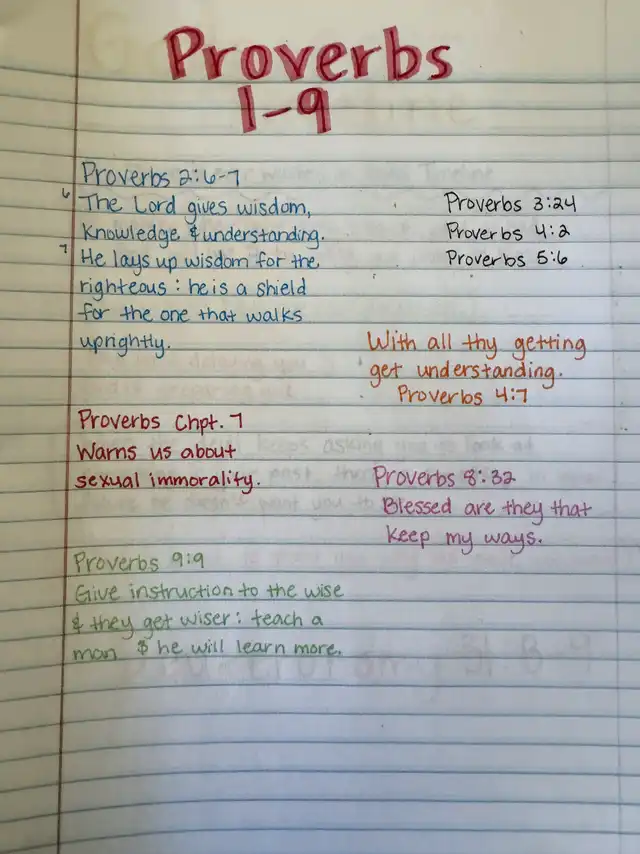 Proverbs
1-9
Proverbs 2:6-7
6 The Lord gives wisdom,
Knowledge & understanding.
7 He lays up wisdom for the
righteous : he is a shield
for the one that walks
uprightly.
Proverbs 3:24
Proverbs 4:2
Proverbs 5:6
With all thy getting
get understanding.
Proverbs 4:7
Proverbs Chpt. 7
Warns us about
sexual immorality.
Proverbs 8:32
Blessed are they that
keep my ways.
Proverbs 9:9
Give instruction to the wise
& they get wiser : teach a
man & he will learn more.